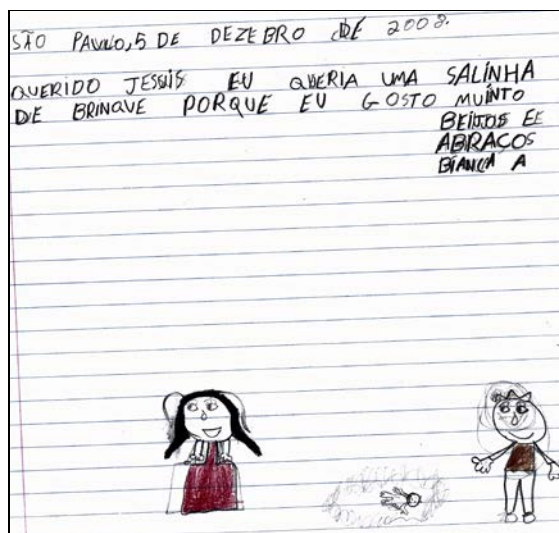 SÃO PAULO, 5 DE DEZEBRO DE 2008.
QUERIDO JESSUIS EU QUERIA UMA SALINHA
DE BRINQUE PORQUE EU GOSTO MUINTO
BEIJOS EE
ABRAÇOS
BIANCA A